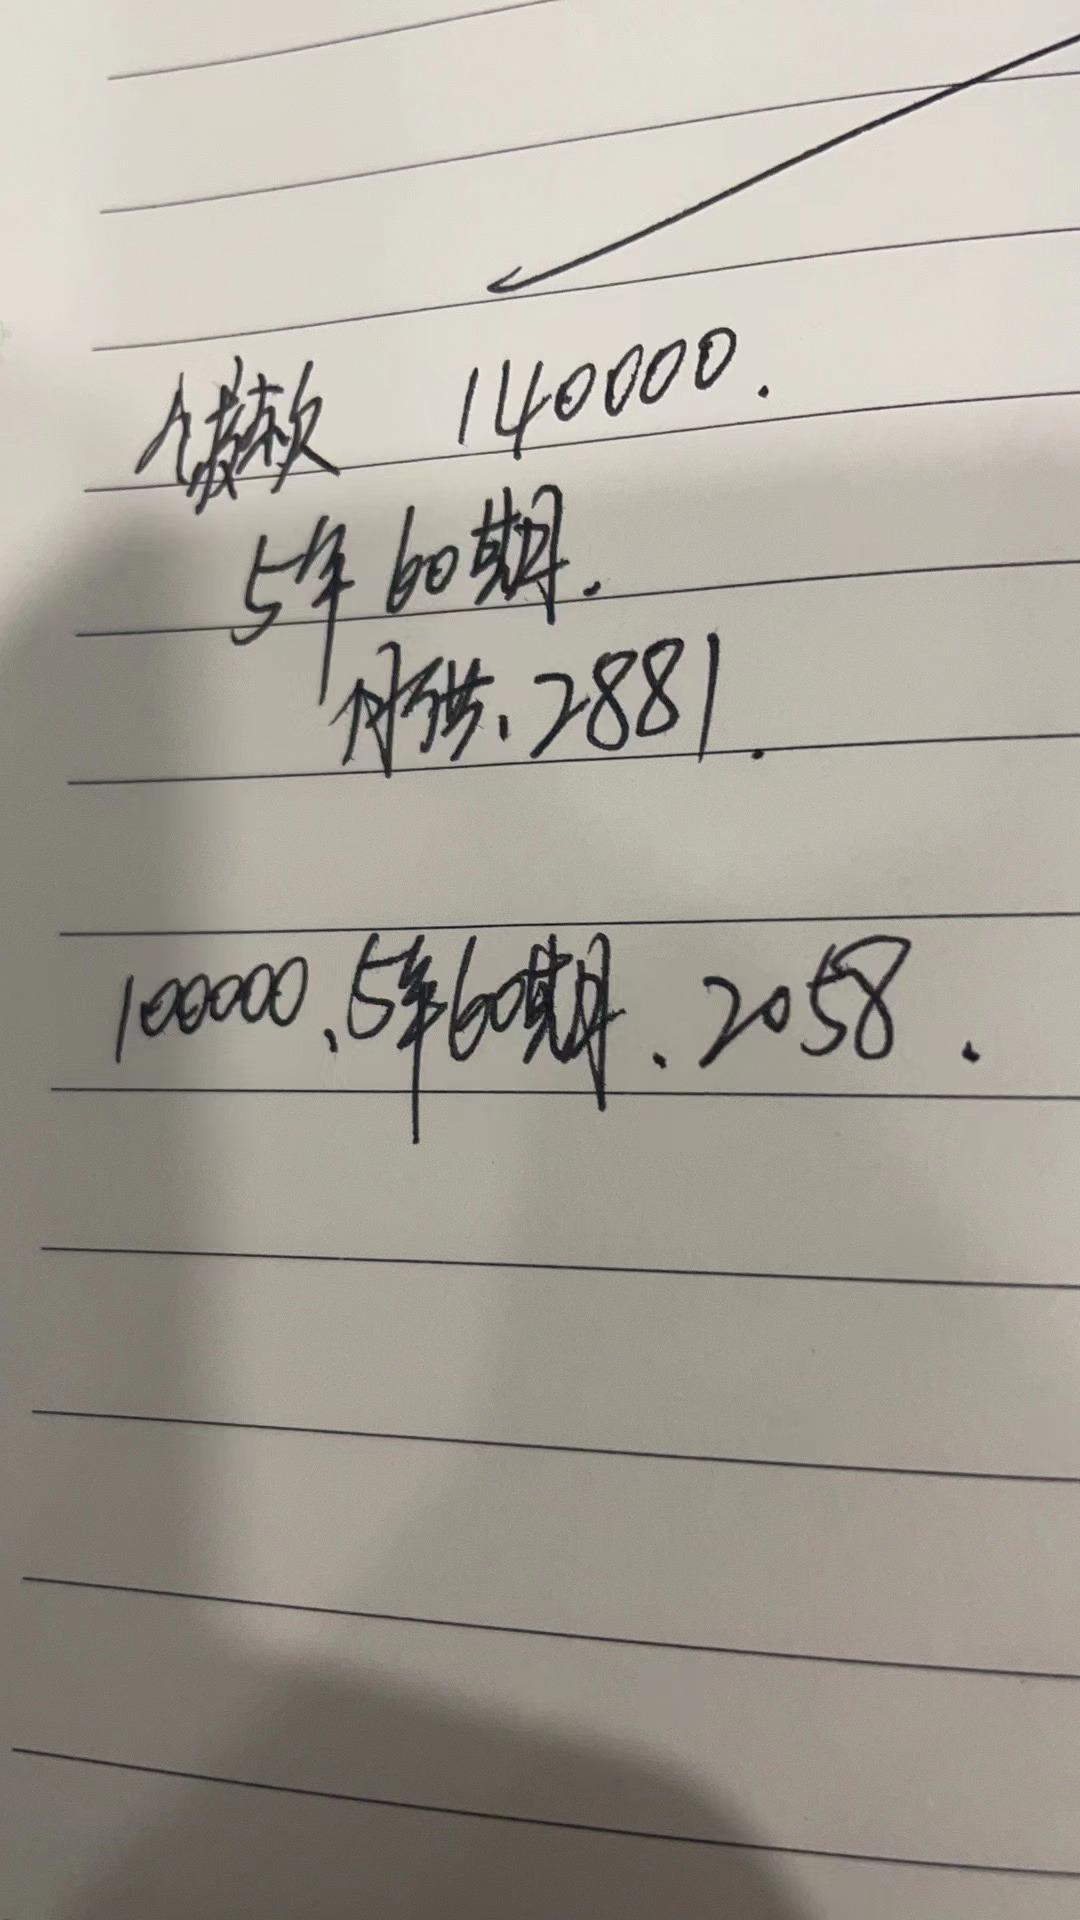 贷款 140000.
5年60期.
月供、2881.
100000、5年60期.2058.